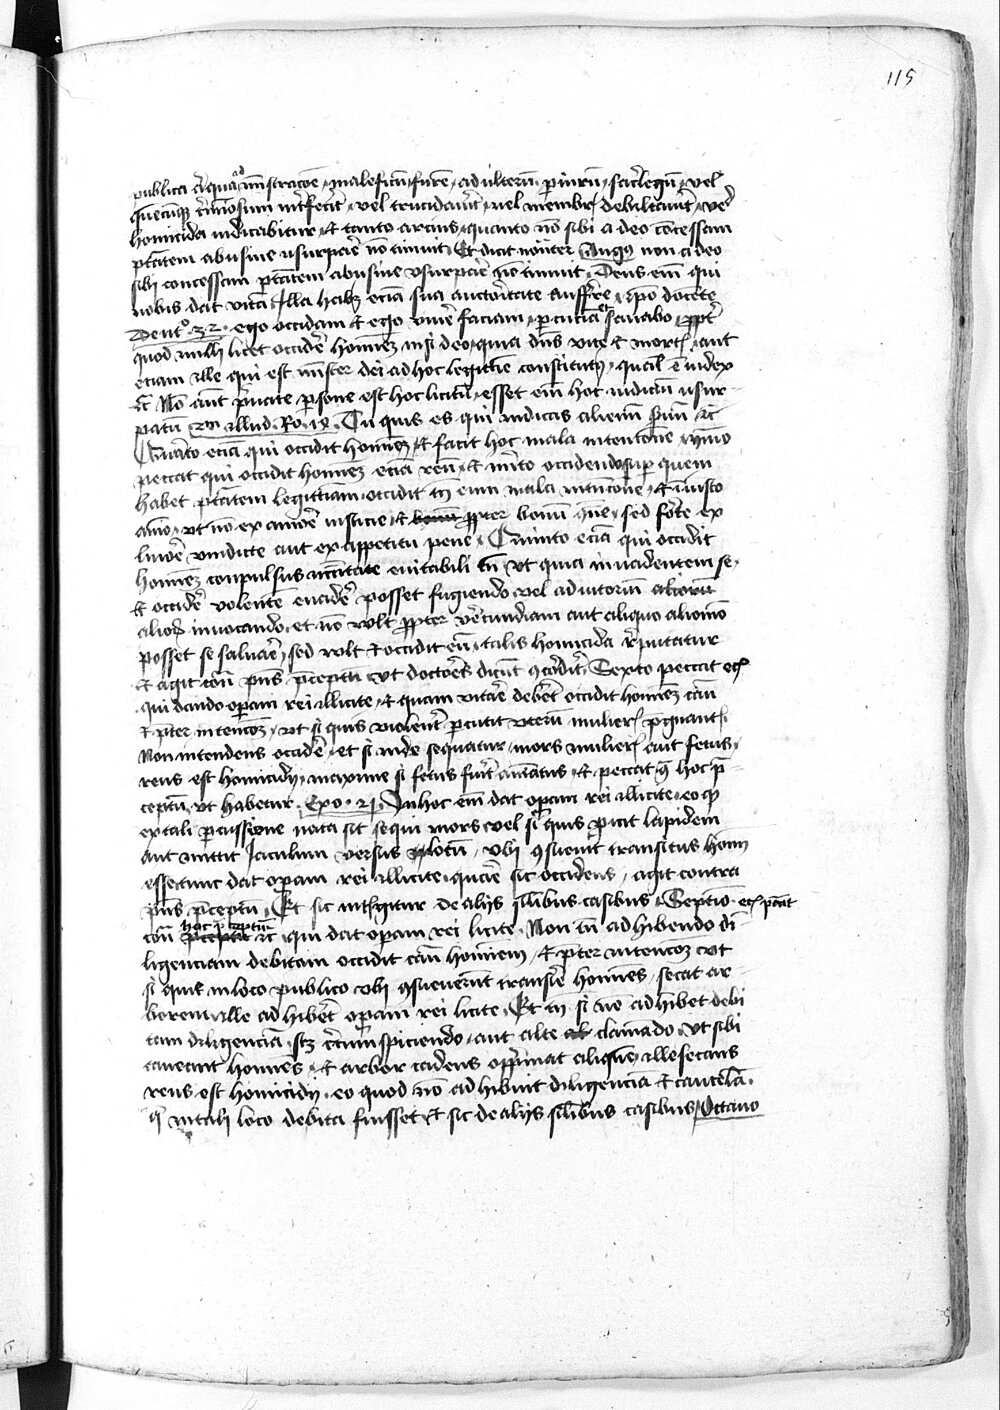 115
publica aliqua amministracione maleficum furem adulterum periurum sacrilegum vel
quemcumque criminosum interfecerit vel trucidaverit vel membris debilitaverit
homicida iudicabitur et tanto arcius quanto non sibi a deo concessam
potestatem abusive usurpare non timuit Et dicit Augus non a deo
sibi concessam potestatem abusive usurpare non timuit Deus enim qui
nobis dat vitam illa habet eciam sua auctoritate auffere ipso docente
Deut° 32° ego occidam et ego vivere faciam percuciam et sanabo propter
quod nulli licet occidere hominem nisi deo quia dominus vite et mortis aut
etiam ille qui est minister dei ad hoc legittime constitutus qualis est iudex
etc Non autem private persone est hoc licitum esset enim hoc iudicium usur-
patum illud Ro 14 Tu quis es qui iudicas alienum servum etc
Quarto eciam qui occidit hominem et facit hoc mala intencione ymmo
peccat qui occidit hominem eciam reum et merito occidendo super quem
habet potestatem legittimam occidit tamen eum mala intencione et iniusto
animo ut non ex amore iusticie et propter bonum commune sed forte ex
livore vindicte aut ex appetitu pene Quinto eciam qui occidit
hominem compulsus necessitate evitabili tamen ut quia invadentem se
et occidere volentem evadere posset fugiendo vel adiutorium
aliorum invocando et non vult propter verecundiam aut aliquo alio modo
posset se salvare sed vult et occidit eum talis homicida reputatur
et agit contra presens preceptum ut doctores dicunt concorditer Sexto peccat eciam
qui dando operam rei illicite et quam vitare deberet occidit hominem casu
et preter intencionem ut si quis violenter percutit uterum mulieris pregnantis
Non intendens occidere et si inde sequatur mors mulieris aut fetus
reus est homicidij maxime si fetus fuerit animatus et peccat contra hoc pre-
ceptum ut habetur Exo 21 In hoc enim dat operam rei illicite eo quod
ex tali percussione nata sit sequi mors vel si quis proicit lapidem
aut mittit Jaculum versus locum ubi consuevit transitus hominum
esse tunc dat operam rei illicite quare sic occidens agit contra
presens preceptum Et sic intelligitur de alijs similibus casibus Septimo eciam peccat
contra hoc preceptum etc qui dat operam rei licite Non tamen adhibendo di-
ligenciam debitam occidit casu hominem et preter intencionem ut
si quis in loco publico ubi consueverunt transire homines secat ar-
borem ille adhibet operam rei licite Et tamen si non adhibet debi
tam diligenciam scilicet circumspiciendo aut alte clamando ut sibi
caveant homines et arbor cadens opprimat aliquem ille secans
reus est homicidij eo quod non adhibuit diligenciam et cautelam
que in tali loco debita fuisset et sic de alijs similibus casibus Octavo